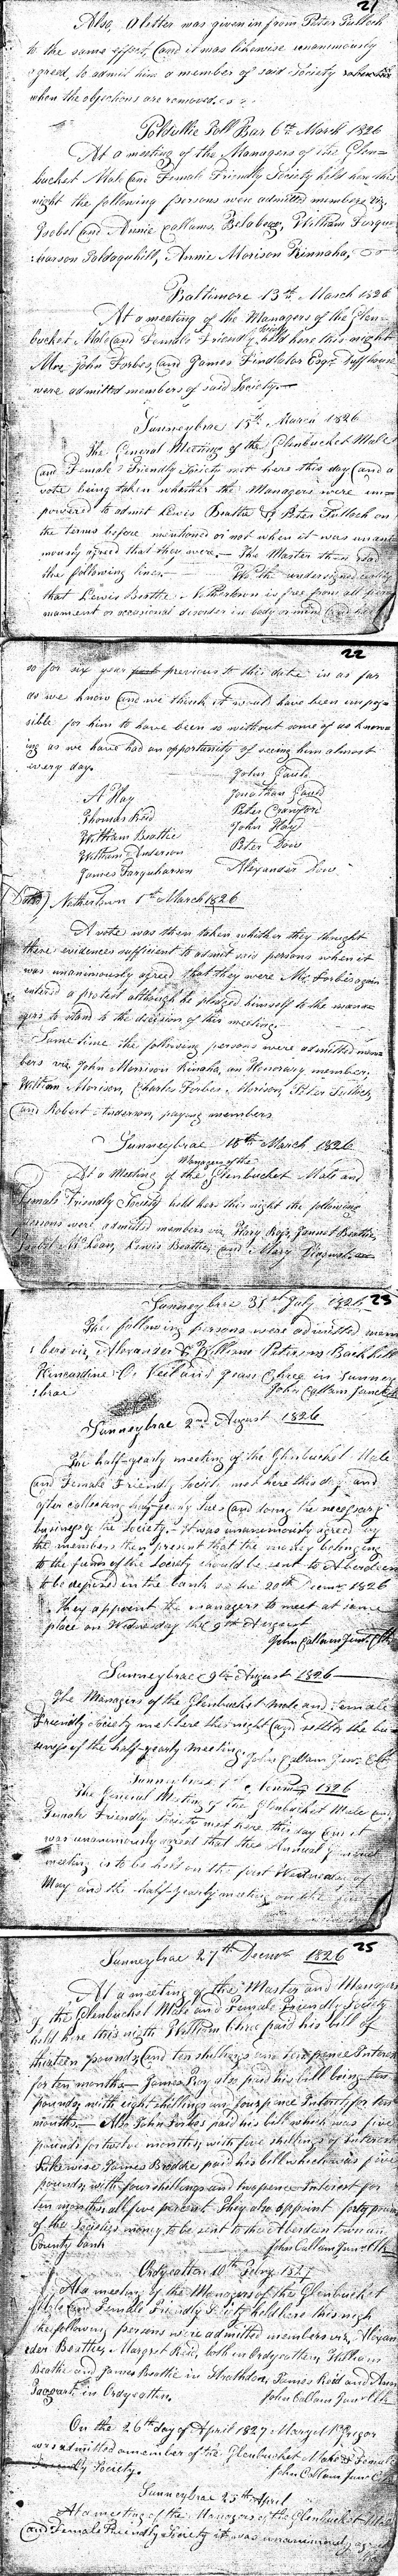 21
Also, a letter was given in from Peter Tulloch
to the same effect, and it was likewise unanimously
agreed, to admit him a member of said Society
when the objections are removed.
Poldullie Poll Bar 6th March 1826
At a meeting of the Managers of the Glen=
bucket Male and Female Friendly Society held here this
night the following persons were admitted members viz.
Isobel and Annie Callams, Belabeg, William Farqu=
:harson Poldaquhill, Annie Morison Kinnaha,
Baltimore 13th March 1826
At a meeting of the Managers of the Glen=
bucket Male and Female Friendly Society held here this night
Mrs John Forbes, and James Findlater Esqr. Duffhouse
were admitted members of said Society.—
Sunneybrae 15th March 1826
The General Meeting of the Glenbucket Male
and Female Friendly Society met here this day and a
vote being taken whether the Managers were im=
powered to admit Lewis Beattie & Peter Tulloch on
the terms before mentioned or not when it was unani
mously agreed that they were.— The Master then read
the following lines.— We the undersigned certify
that Lewis Beattie Nethertown is free from all per
manent or occasional disorder in body or mind and
22
so for six year previous to this date in as far
as we know and we think it would have been impos=
sible for him to have been so without some of us know=
ing as we have had an opportunity of seeing him almost
every day.
John Gauld
A Hay Jonathan Gauld
Thomas Reid Peter Crawford
William Beattie John Hay
William Anderson Peter Dow
James Farquharson Alexander Dow
(Date) Nethertown 1st March 1826
A vote was then taken whether they thought
these evidences sufficient to admit said persons when it
was unanimously agreed that they were Mr Forbes again
entered a protest although he pledged himself to the mana=
gers to stand to the decision of this meeting.
Same time the following persons were admitted mem
bers viz John Morrison Kinaha, an Honorary member.
William Morison, Charles Forbes Morison, Peter Tulloch,
and Robert Anderson, paying members
Sunneybrae 18th March 1826
Managers of the
At a Meeting of the Glenbucket Male and
Female Friendly Society held here this night the following
persons were admitted members viz Mary Roy, Jannet Beattie,
Isobel McLean, Lewis Beattie, and Mary
23
Sunneybrae 31st July 1826
The following persons were admitted mem
:bers viz, Alexander & William Petrie in Backhill
Kincardine O, Neil and Jean Cline in Sunney
:brae John Callam Junr Clk
Sunneybrae 2nd August 1826
The half-yearly meeting of the Glenbucket Male
and Female Friendly Society met here this day and
after collecting half-yearly dues and doing the necessary
business of the Society.— It was unanimously agreed by
the members then present that the money belonging
to the funds of the Society should be sent to Aberdeen
to be deposed in the bank on the 20th Decmr 1826
They appoint the managers to meet at same
place on Wednesday the 9th August
John Callam Junr. Clk
Sunneybrae 9th August 1826
The Managers of the Glenbucket Male and Female
Friendly Society met here this night and settle the bu
siness of the half-yearly meeting. John Callam Junr. Clk
Sunneybrae 1826
The General Meeting of the Glenbucket Male and
Female Friendly Society met here this day and it
was unanimously agreed that the Annual general
meeting is to be held on the first Wednesday of
May and the half-yearly meeting on the
25
Sunneybrae 27th Decmr 1826
At a meeting of the Master and Managers
of the Glenbucket Male and Female Friendly Society
held here this night William Cline paid his bill of
thirteen pounds and ten shillings and pence Interest
for ten months— James Roy also paid his bill being ten
pounds with eight shillings and fourpence Interest for ten
months.— Also John Forbes paid his bill which was five
pounds for twelve months, with five shillings of Interest
Likewise James Brodie paid his bill which was five
pounds with four shillings and two pence Interest for
ten months, all five percent. They also appoint forty pounds
of the Societys money to be sent to the Aberdeen town and
County bank John Callam Junr Clk
Ordycatten 10th Febry. 1827
At a meeting of the Managers of the Glenbucket
Male and Female Friendly Society held here this night
the following persons were admitted members viz, Alexan
der Beattie, Margret Reid, both in Ordycatten, William
Beattie and James Beattie in Strathdon, James Reid and Ann
Taggart, in Ordycatten. John Callam Junr Clk
On the 26th day of April 1827 Margret McGregor
was admitted a member of the Glenbucket Male & Female
Friendly Society. John Callam Junr Clk
Sunneybrae 25th April
At a meeting of the Managers of the Glenbucket Male
and Female Friendly Society it was unanimously agreed